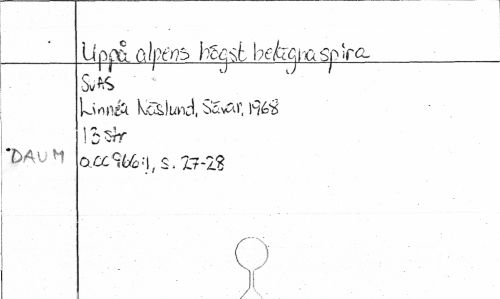 Uppå alpens högst belägna spira
SvAS
Linnéa Näslund, Sävar, 1968
13 str
DAUM
acc 966:1, s. 27-28